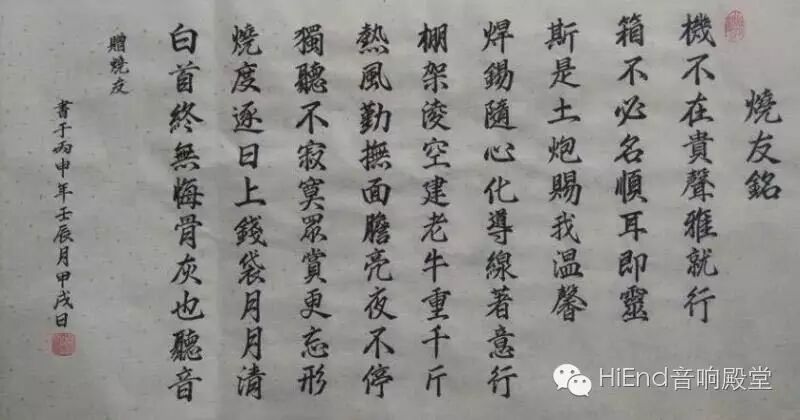 燒友銘
機不在貴聲雅就行
箱不必名順耳即靈
斯是土炮賜我溫馨
焊錫隨心化導線著意行
棚架淩空建老牛重千斤
熱風勤撫面膽亮夜不停
獨聽不寂寞眾賞更忘形
燒度逐日上錢袋月月清
白首終無悔骨灰也聽音
贈燒友
書于丙申年壬辰月甲戌日
HiEnd音响殿堂